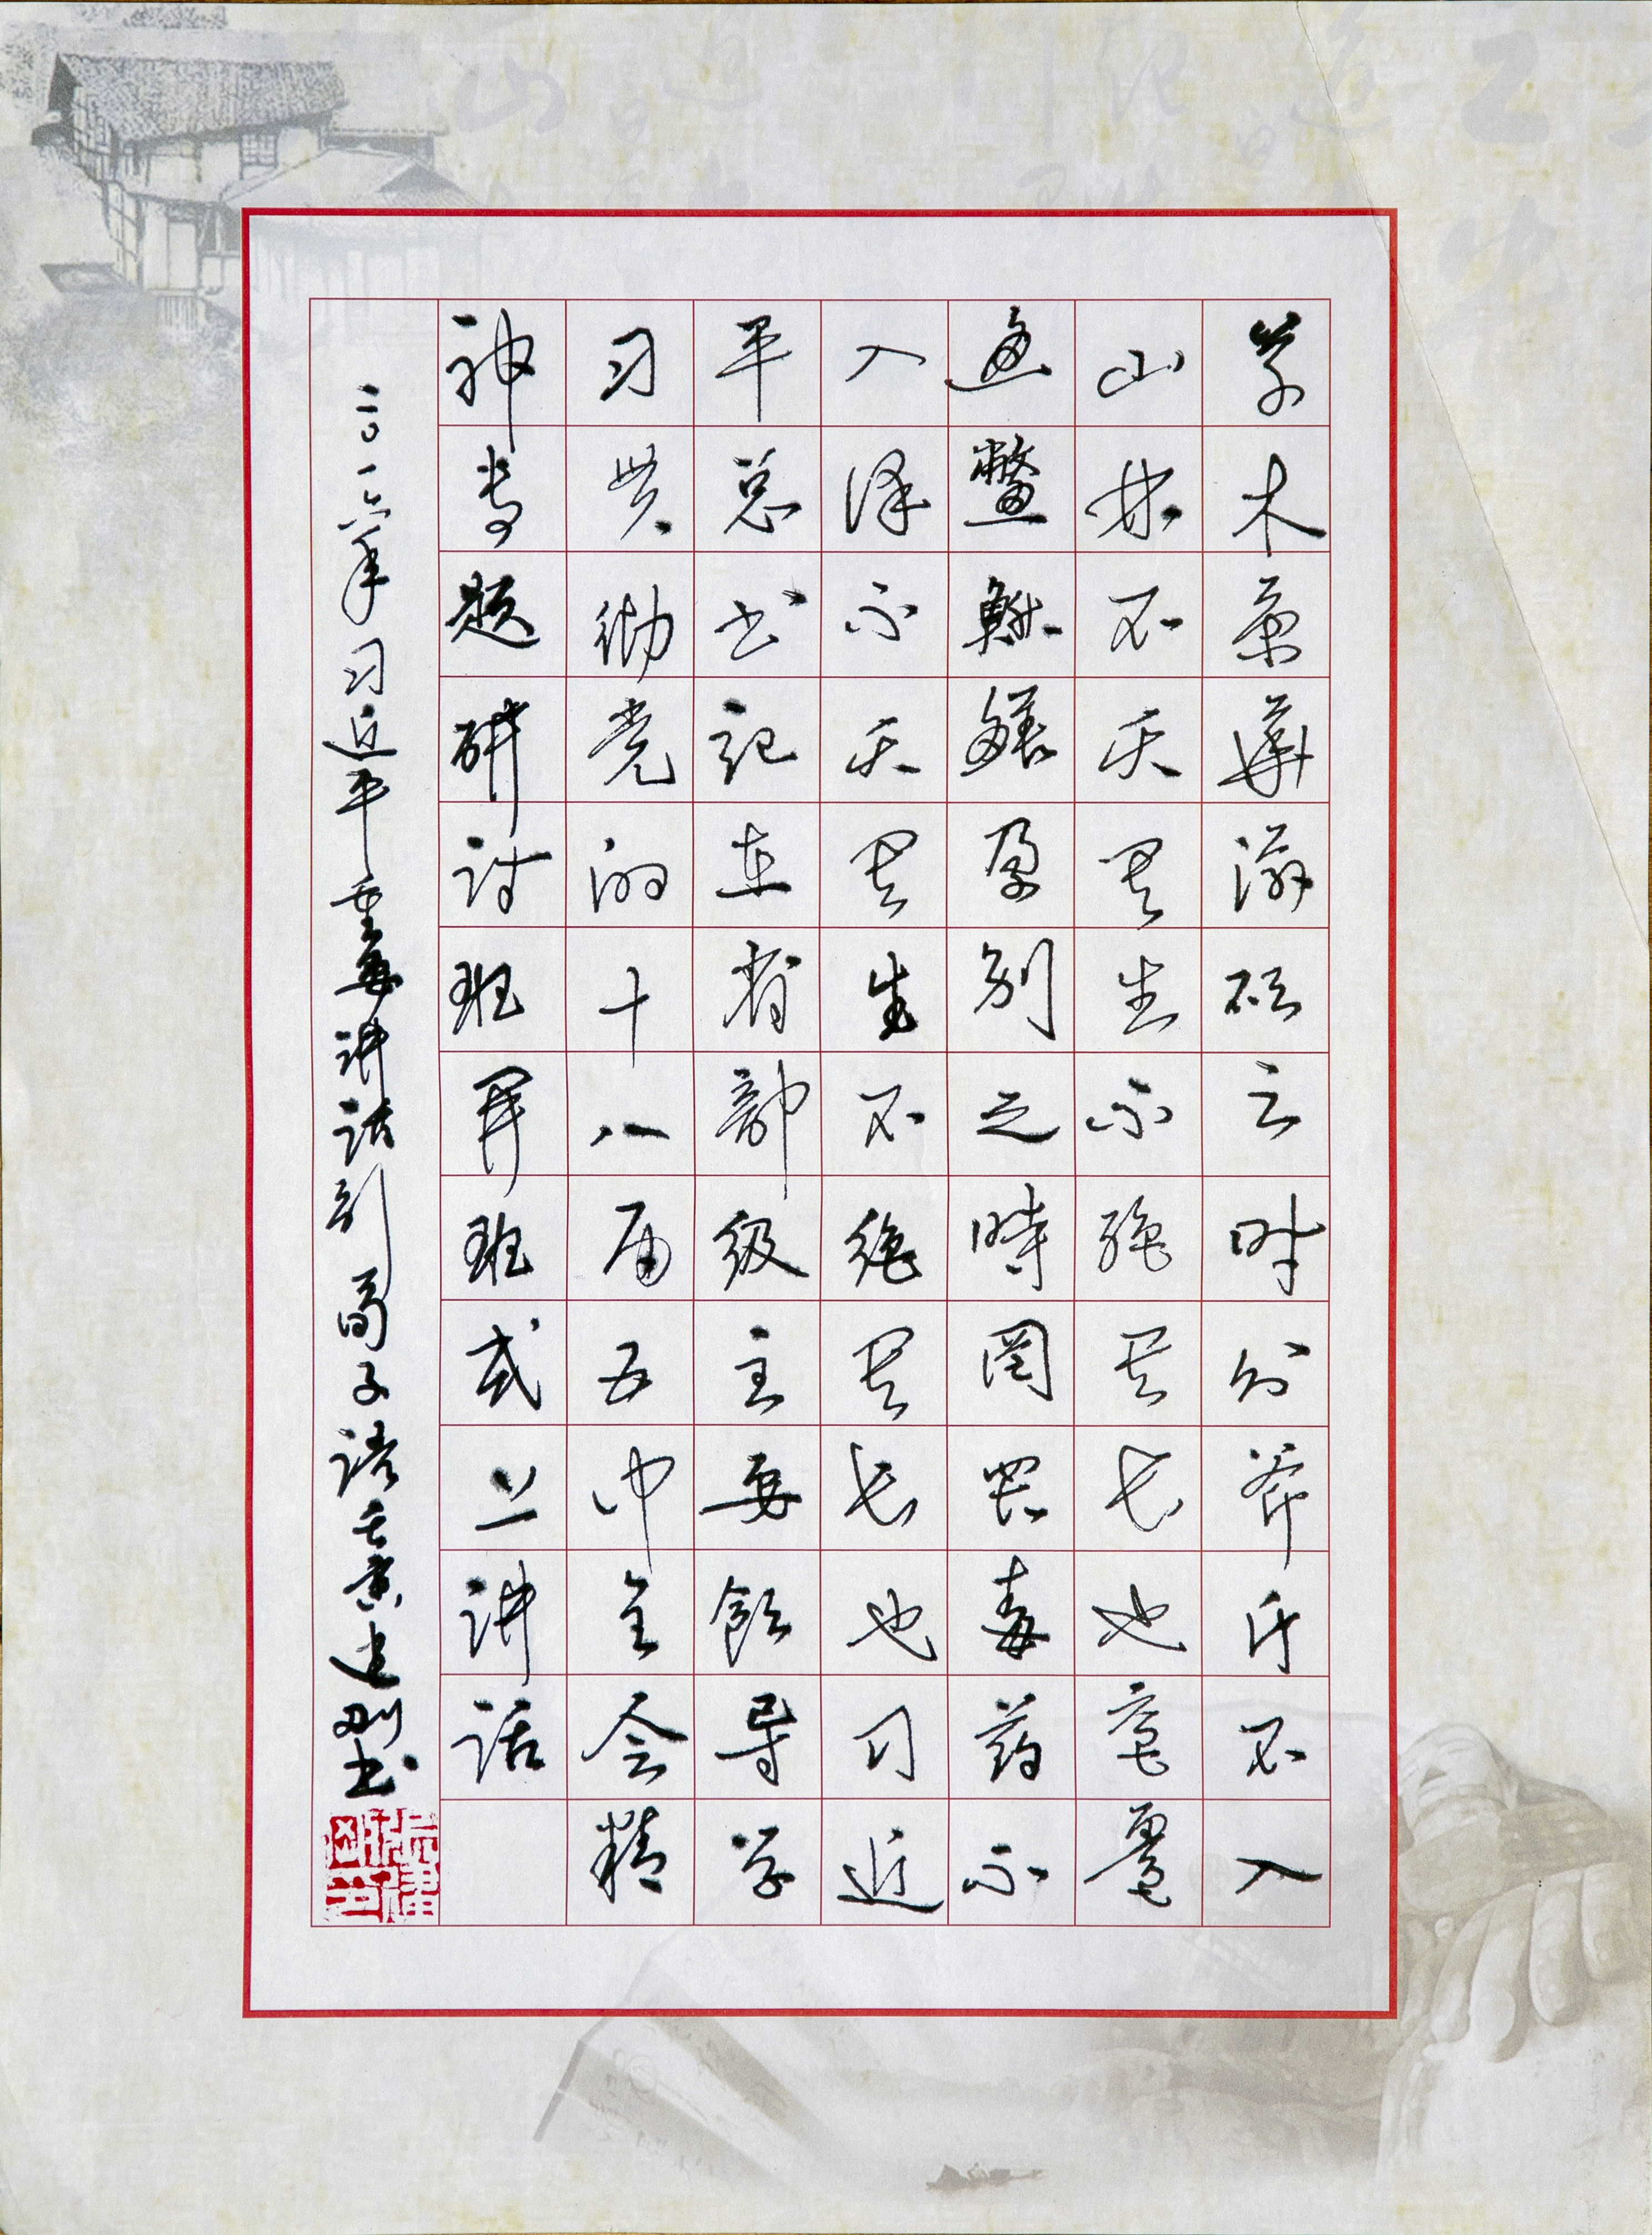 草木荣華滋硕之时则斧斤不入
山林不夭其生不绝其长也鼋鼍
鱼鳖鳅鳝孕别之時罔罟毒药不
入泽不夭其生不绝其长也习近
平总书记在省部级主要领导学
习贯彻党的十八届五中全会精
神专题研讨班开班式上讲话
二〇一六年习近平重要讲话引荀子语壬寅建刚书